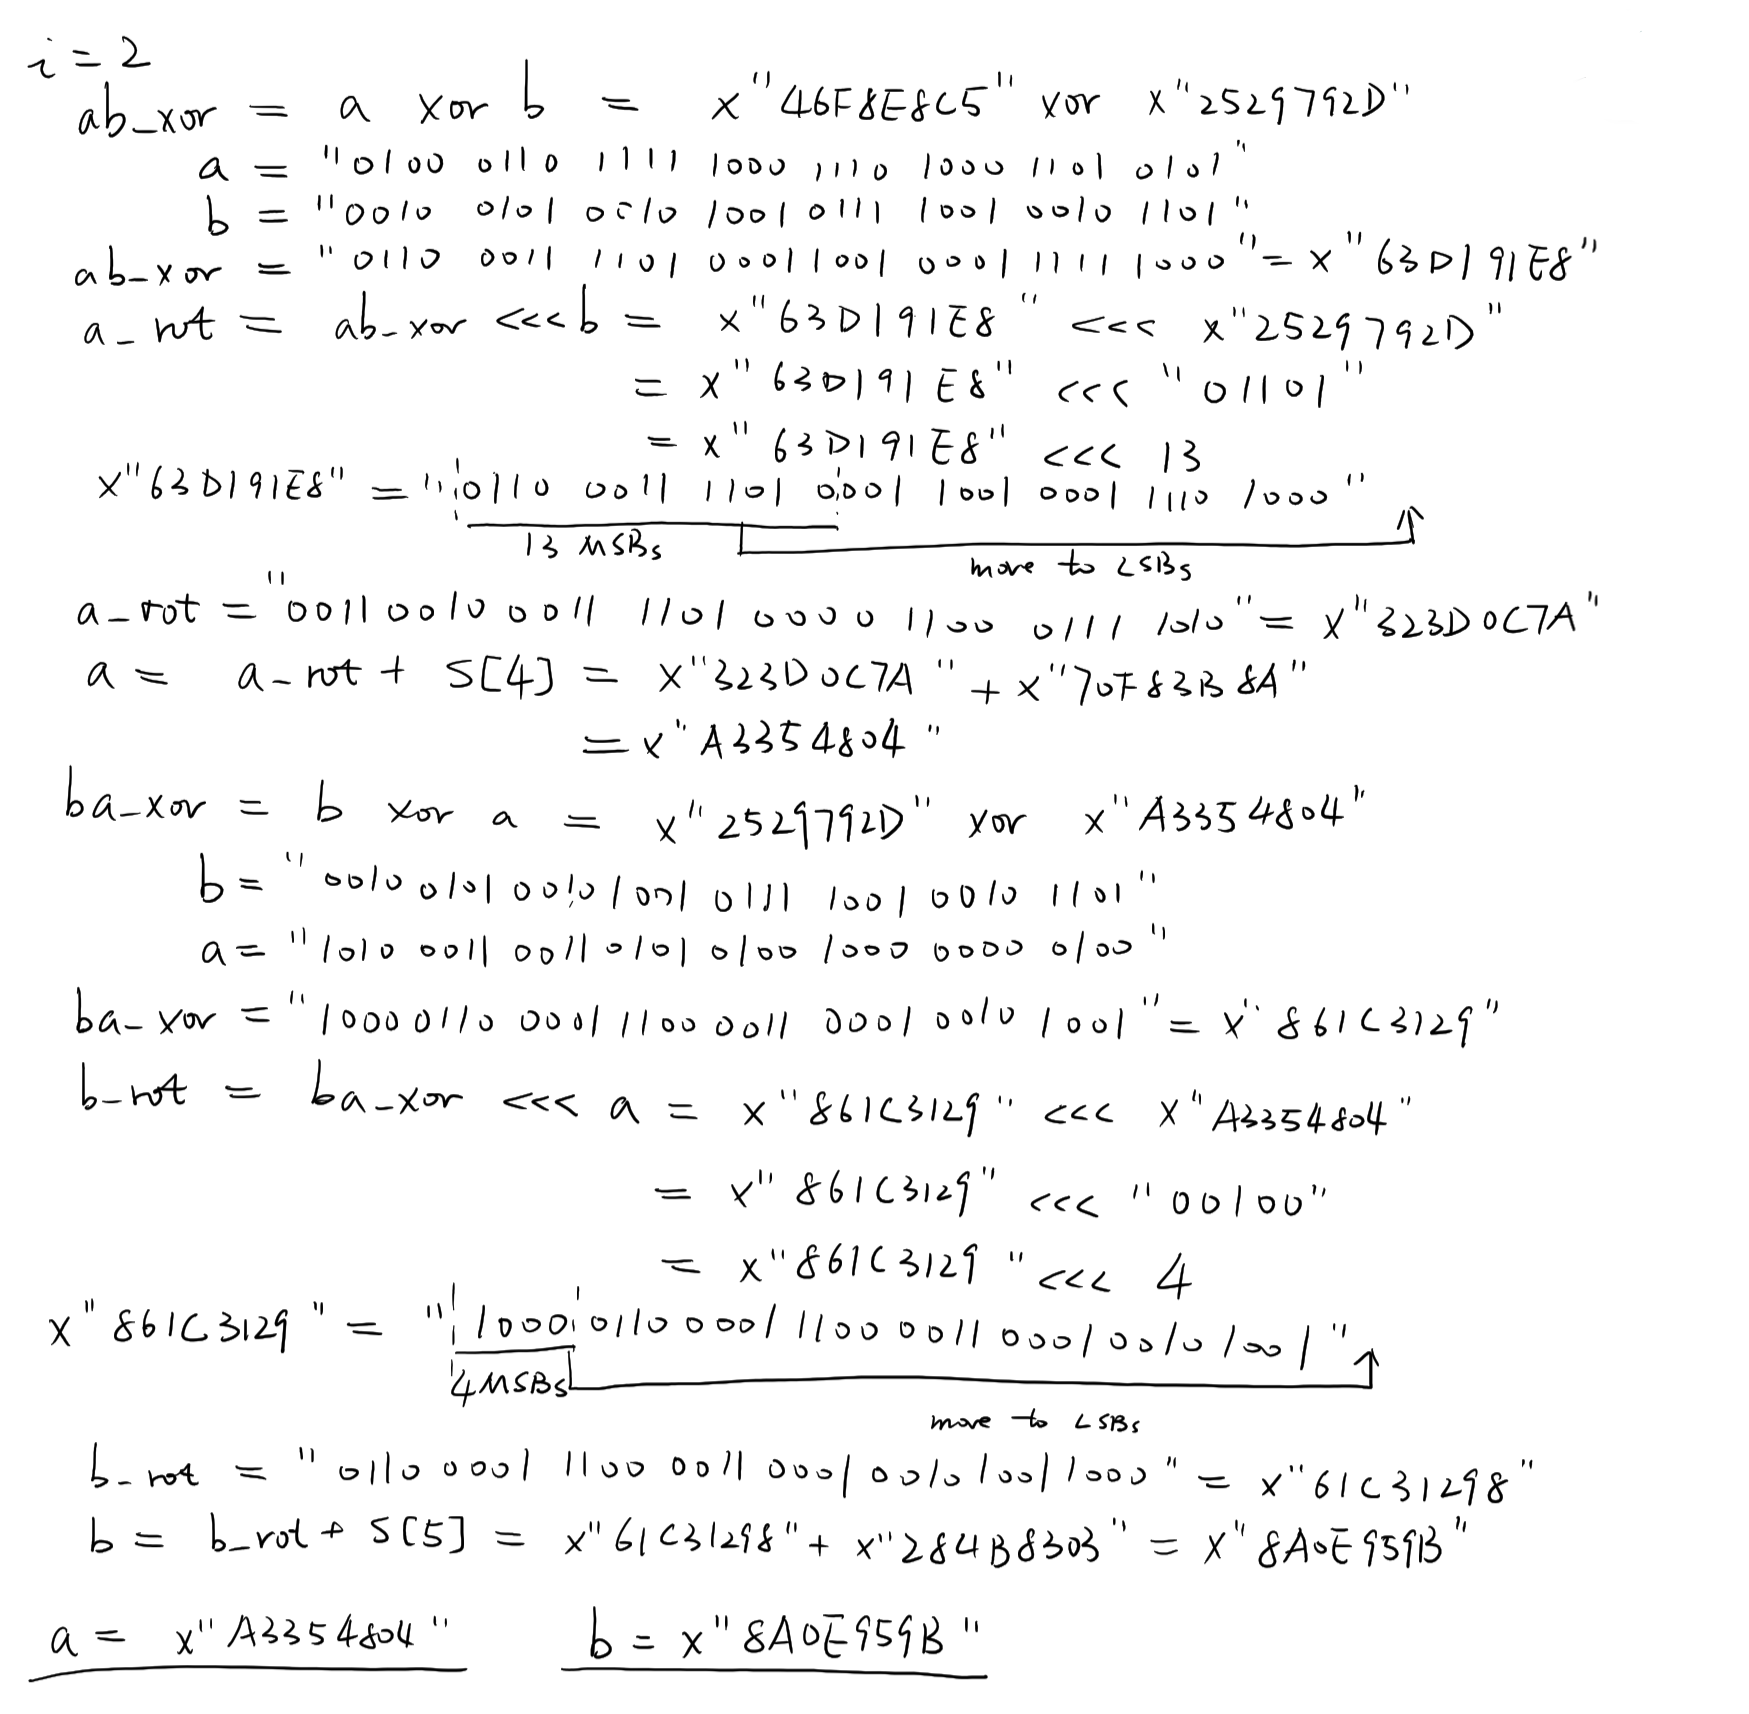 i = 2
ab_xor = a xor b = x"46F8E8C5" xor x"2529792D"
a = "0100 0110 1111 1000 1110 1000 1101 0101"
b = "0010 0101 0010 1001 0111 1001 0010 1101"
ab_xor = "0110 0011 1101 0001 1001 0001 1111 1000" = x"63D191E8"
a_rot = ab_xor <<< b = x"63D191E8" <<< x"2529792D"
= x"63D191E8" <<< "01101"
= x"63D191E8" <<< 13
x"63D191E8" = "0110 0011 1101 0001 1001 0001 1110 1000"
13 MSBs
move to LSBs
a_rot = "0011 0010 0011 1101 0000 1100 0111 1010" = x"323D0C7A"
a = a_rot + S[4] = x"323D0C7A" + x"70F83B8A"
= x"A3354804"
ba_xor = b xor a = x"2529792D" xor x"A3354804"
b = "0010 0101 0010 1001 0111 1001 0010 1101"
a = "1010 0011 0011 0101 0100 1000 0000 0100"
ba_xor = "1000 0110 0001 1100 0011 0001 0010 1001" = x"861C3129"
b_rot = ba_xor <<< a = x"861C3129" <<< x"A3354804"
= x"861C3129" <<< "00100"
= x"861C3129" <<< 4
x"861C3129" = "1000 0110 0001 1100 0011 0001 0010 1001"
4 MSBs
move to LSBs
b_rot = "0110 0001 1100 0011 0001 0010 1001 1000" = x"61C31298"
b = b_rot + S[5] = x"61C31298" + x"284B8303" = x"8A0E959B"
a = x"A3354804" b = x"8A0E959B"